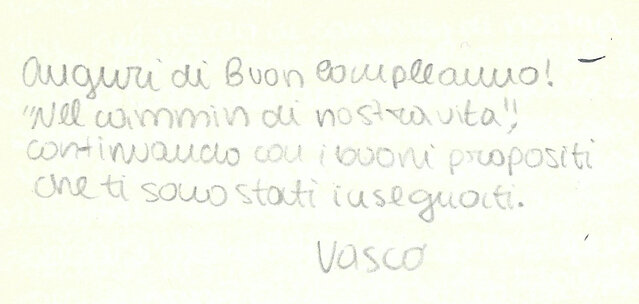 Auguri di Buon compleanno!
"Nel cammin di nostra vita",
continuando con i buoni propositi
che ti sono stati insegnati.
Vasco